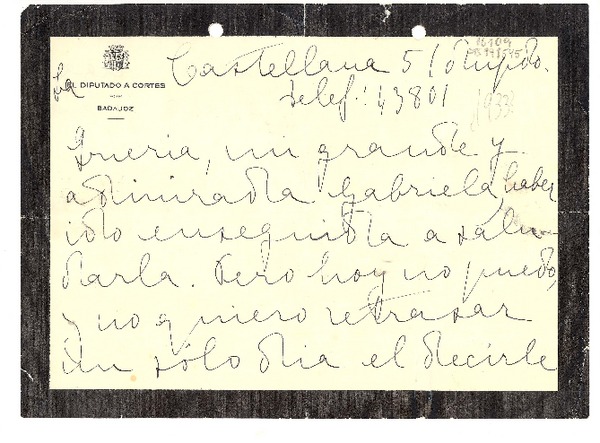 Castellana 51 dupdo.
Telef: 43801
EL DIPUTADO A CORTES
BADAJOZ
Querría, mi grande y
admirada Gabriela, haber
ido enseguida a salu-
darla. Pero hoy no puedo,
y no quiero retrasar
un sólo día el decirle